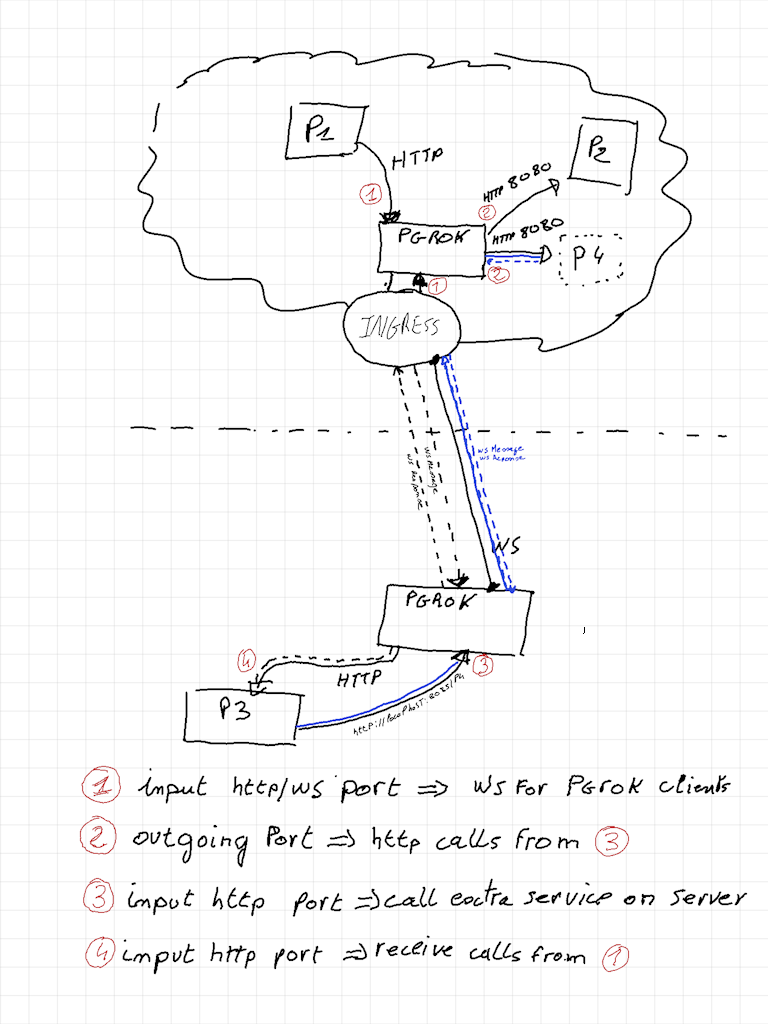 P1
HTTP
P2
1
HTTP 8080
2
PGROK
HTTP 8080
P4
2
1
INGRESS
WS Message
WS Response
WS Message
WS Response
WS
PGROK
4
3
HTTP
P3
1 input http/ws port => WS For PGrok clients
2 outgoing Port => http calls from 3
3 input http port => call extra service on server
4 input http port => receive calls from 1